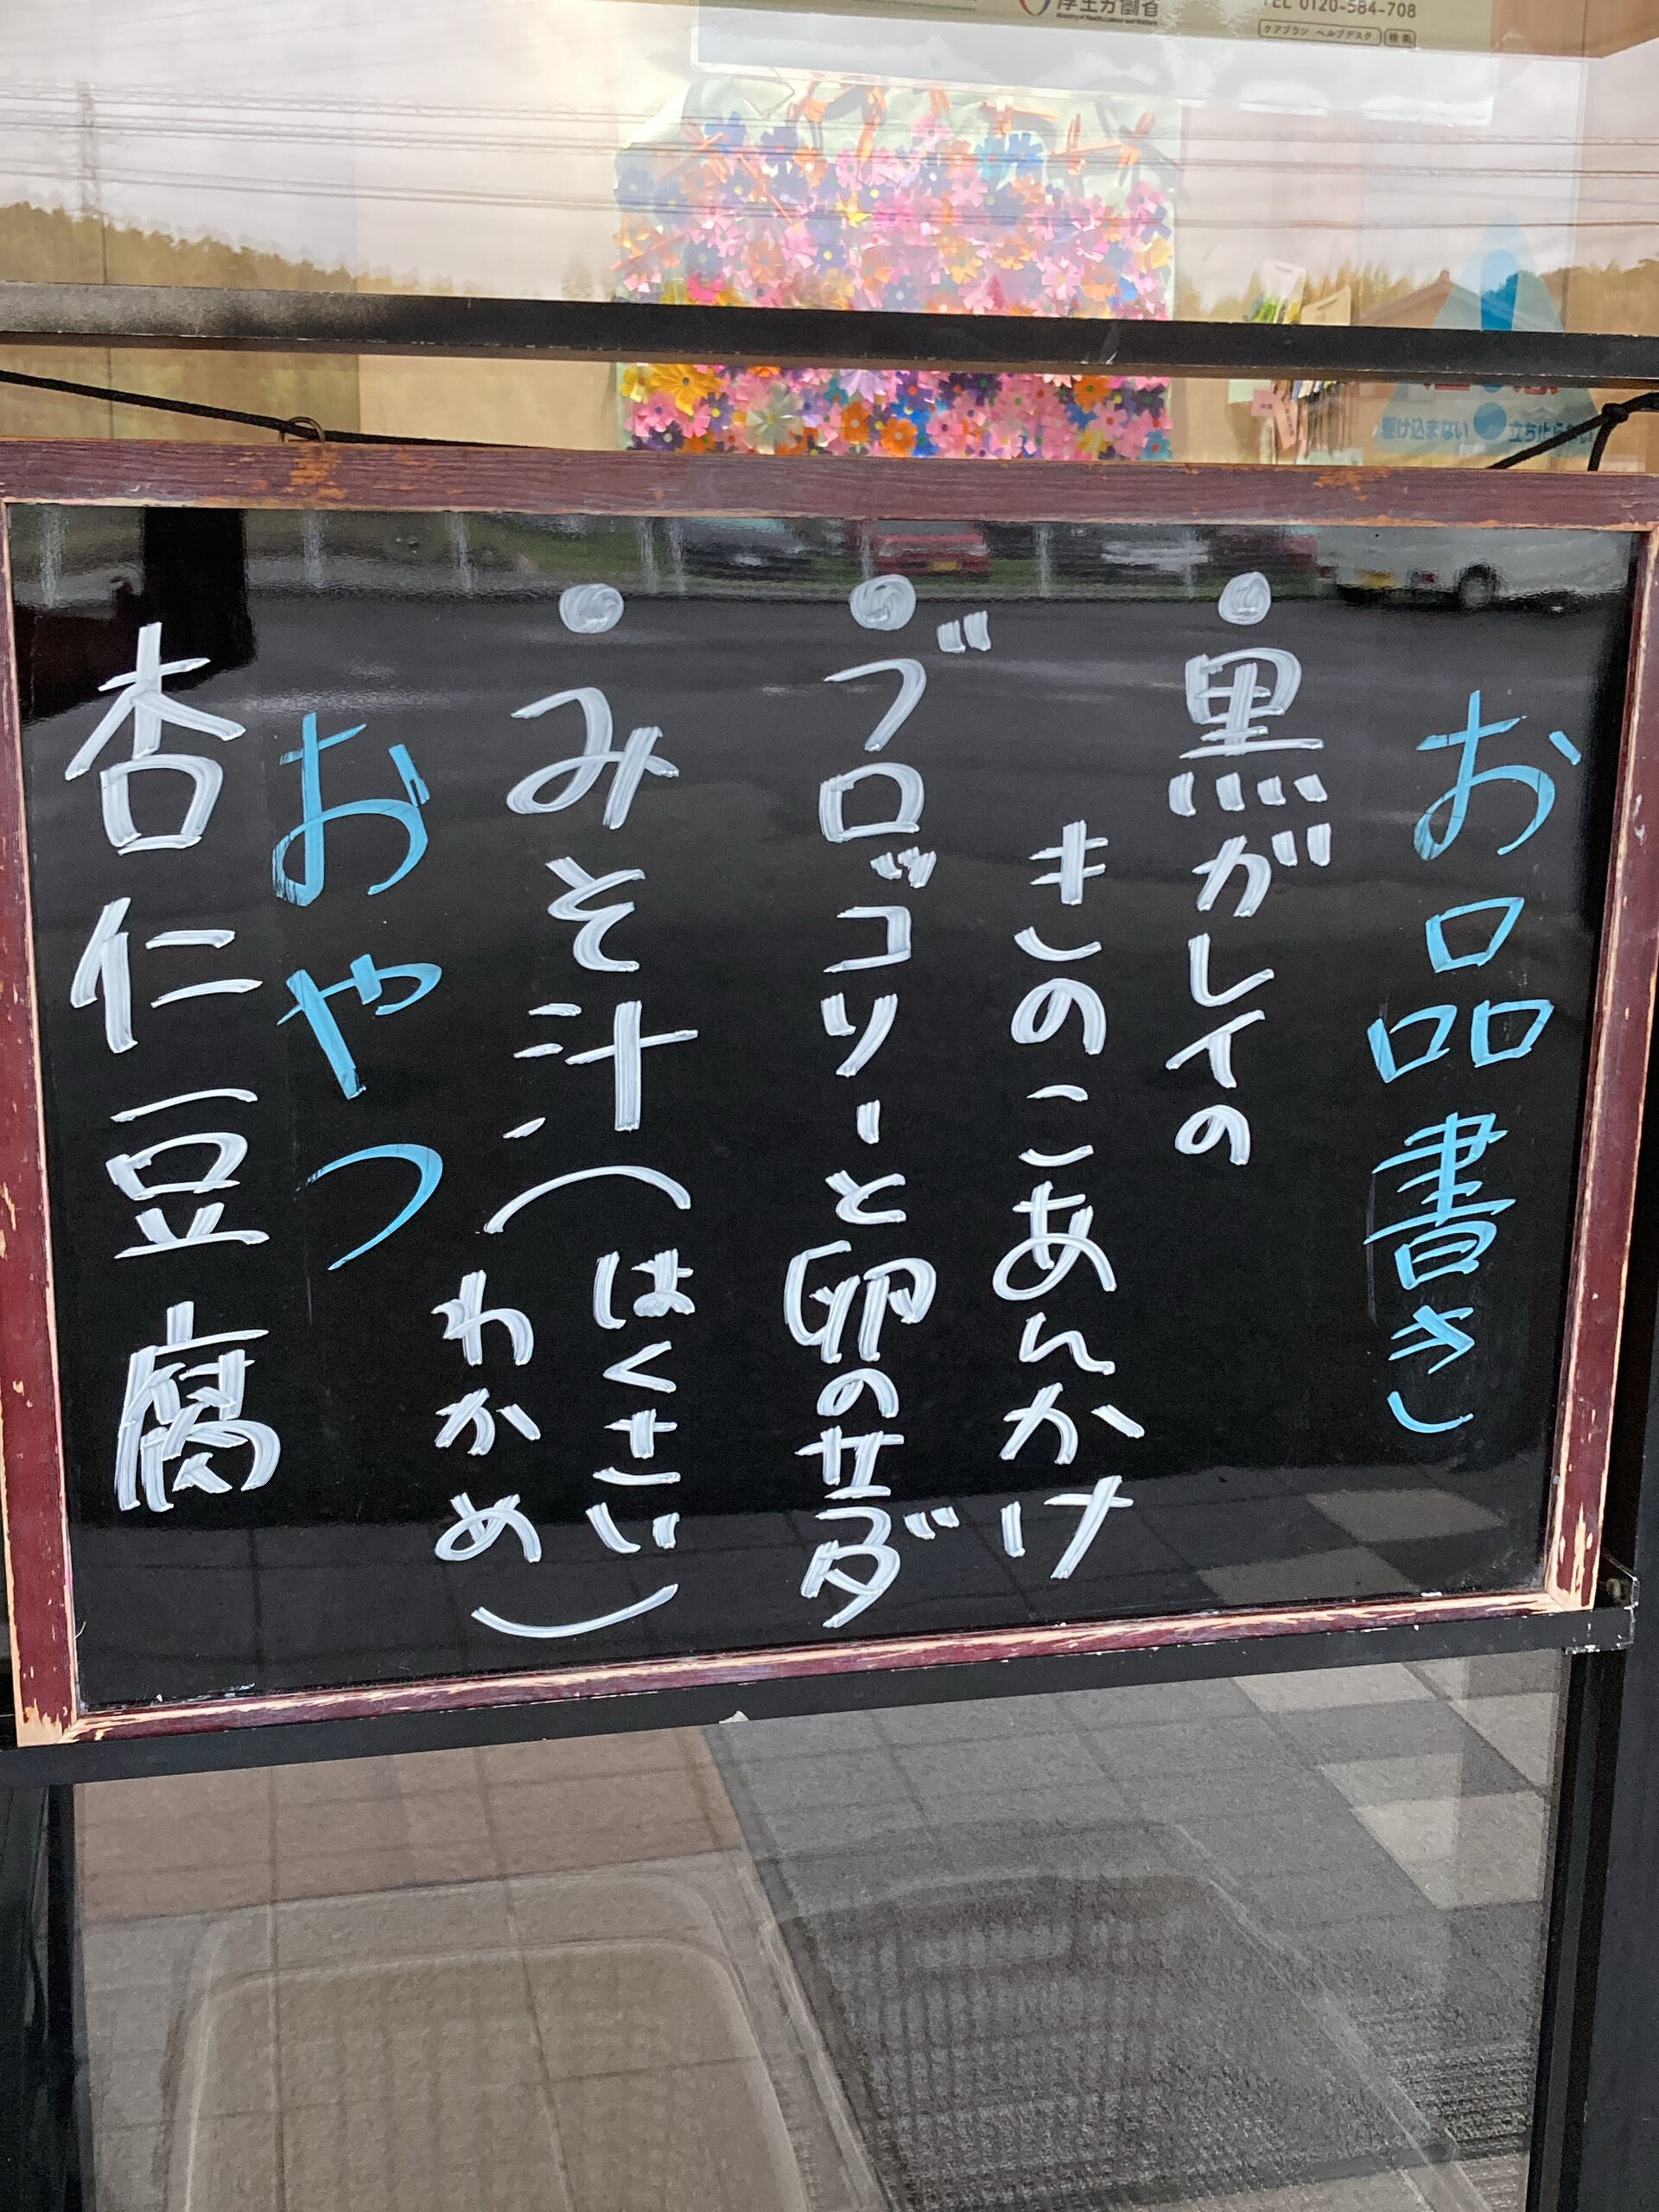 厚生労働省
Ministry of Health, Labour and Welfare
TEL 0120-584-708
ケアプラン ヘルプデスク 検索
駆け込まない
お品書き
・黒がレイの
きのこあんかけ
・ブロッコリーと卵のサラダ
・みそ汁(はくさい
わかめ)
おやつ
杏仁豆腐